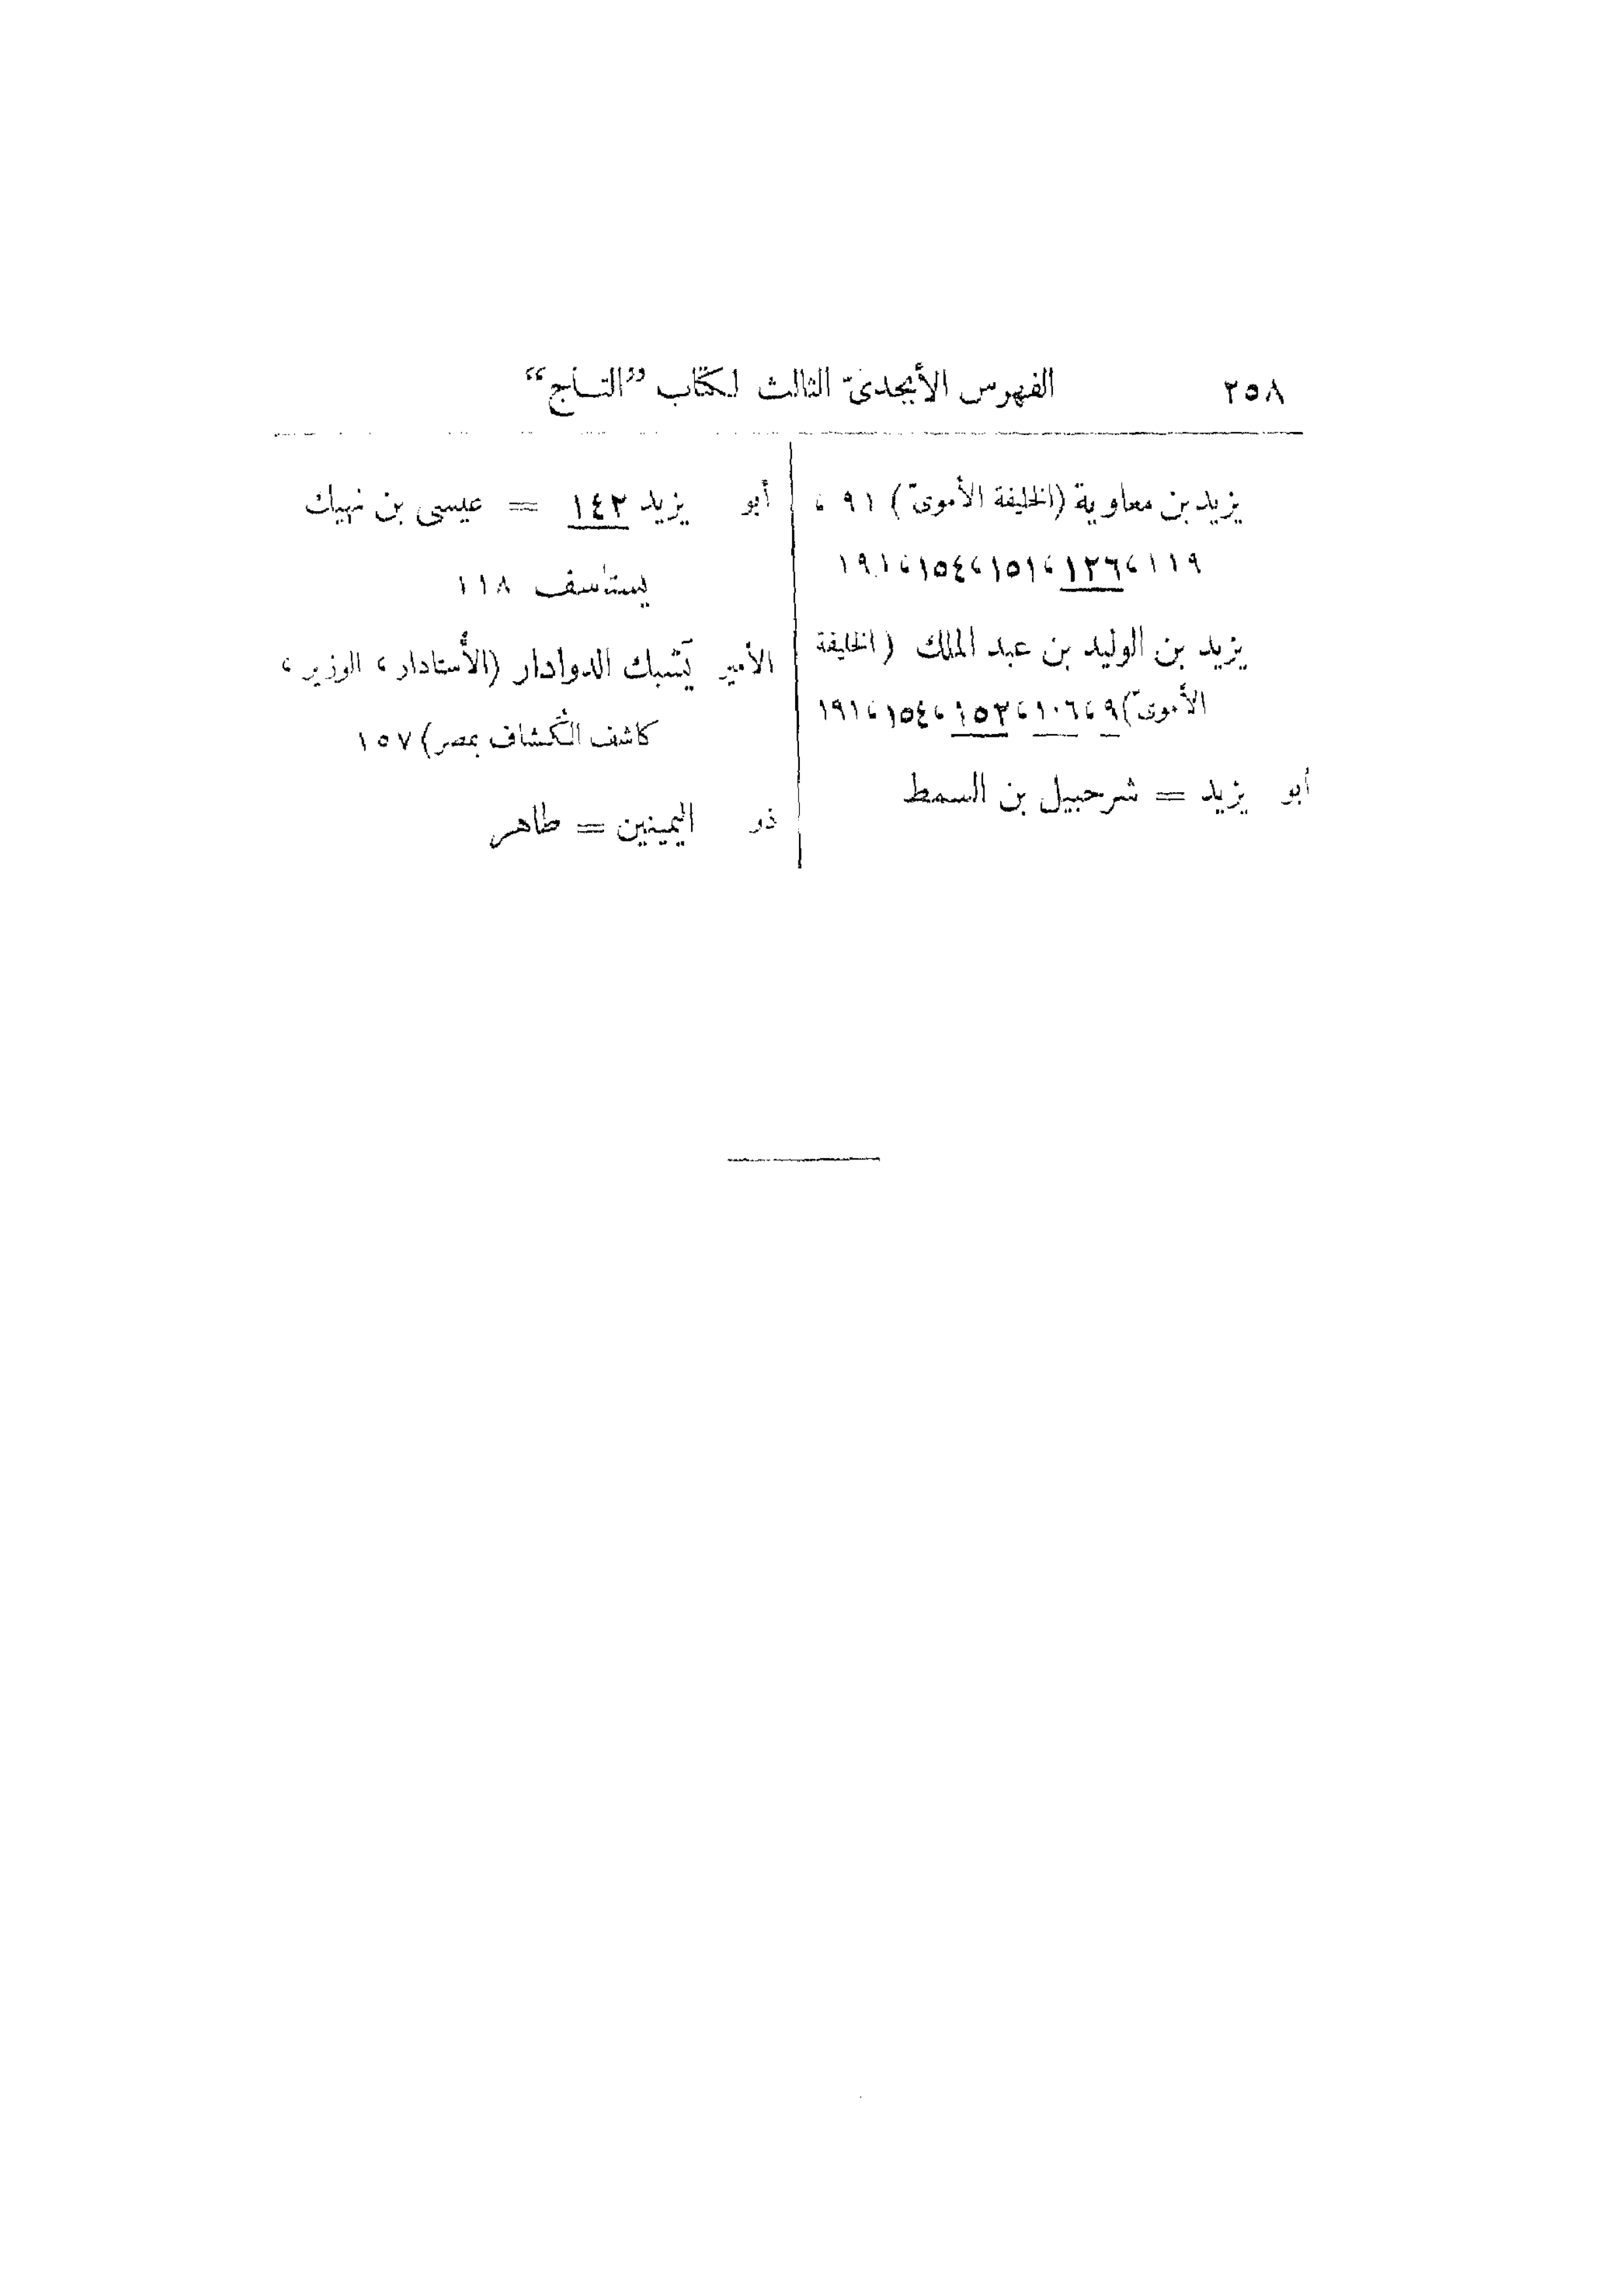 ٢٥٨ الفهرس الأبجدىّ الثالث لكتاب "التاج"
يزيد بن معاوية (الخليفة الأموىّ) ٩١ ،
١١٩ ، ١٢٦ ، ١٥١ ، ١٥٤ ، ١٩١
يزيد بن الوليد بن عبد الملك (الخليفة
الأموىّ) ٩ ، ١٠٦ ، ١٥٣ ، ١٥٤ ، ١٩١
أبو يزيد = شرحبيل بن السمط
أبو يزيد ١٤٢ = عيسى بن نهيك
يستاسف ١١٨
الأمير يَشبك الدوادار (الأُستادار ، الوزير ،
كاشف الكُشاف بمصر) ١٥٧
ذو اليمينين = طاهر